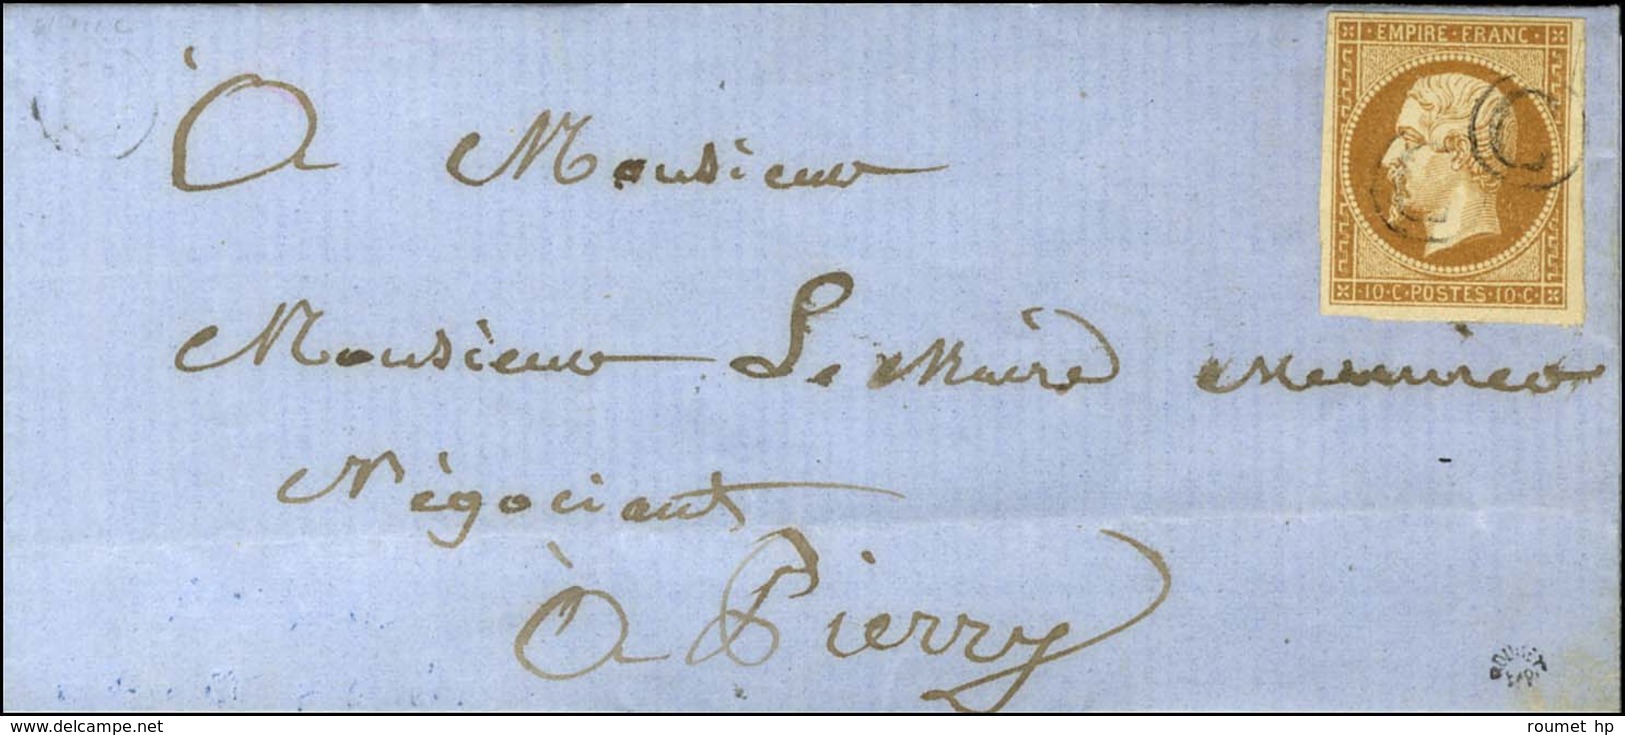 EMPIRE · FRANC ·
C
C
10 · C · POSTES · 10 · C ·
À Monsieur
Monsieur Le Maire
Négociant
à Pierry
ROUMET
Exp.
www.delcampe.net
roumet hp